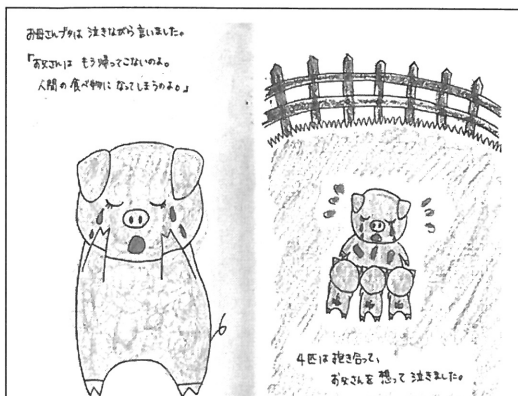 お母さんブタは 泣きながら言いました。
「お父さんは もう帰ってこないのよ。
人間の食べ物に なってしまうのよ。」
4匹は抱き合って、
お父さんを 想って泣きました。